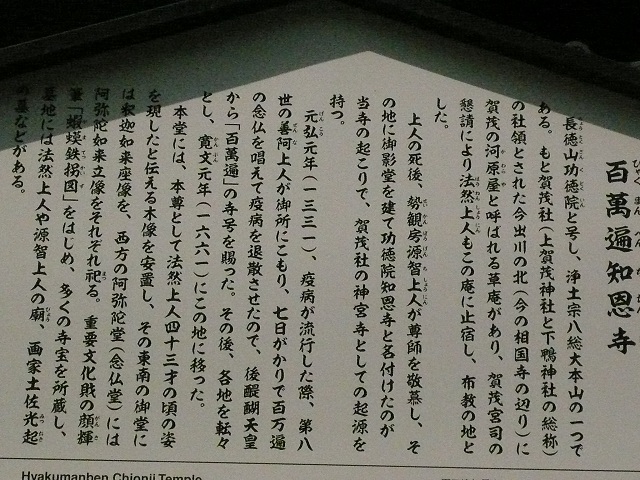 百萬遍知恩寺
長徳山功徳院と号し、浄土宗八総大本山の一つで
ある。もと賀茂社(上賀茂神社と下鴨神社の総称)
の社領とされた今出川の北(今の相国寺の辺り)に
賀茂の河原屋と呼ばれる草庵があり、賀茂宮司の
懇請により法然上人もこの庵に止宿し、布教の地と
した。
上人の死後、勢観房源智上人が尊師を敬慕し、そ
の地に御影堂を建て功徳院知恩寺と名付けたのが
当寺の起こりで、賀茂社の神宮寺としての起源を
持つ。
元弘元年(一三三一)、疫病が流行した際、第八
世の善阿上人が御所にこもり、七日がかりで百万遍
の念仏を唱えて疫病を退散させたので、後醍醐天皇
から「百萬遍」の寺号を賜った。その後、各地を転々
とし、寛文元年(一六六一)にこの地に移った。
本堂には、本尊として法然上人四十三才の頃の姿
を現したと伝える木像を安置し、その東南の御堂に
は釈迦如来座像を、西方の阿弥陀堂(念仏堂)には
阿弥陀如来立像をそれぞれ祀る。重要文化財の顔輝
筆「蝦蟆鉄拐図」をはじめ、多くの寺宝を所蔵し、
墓地には法然上人や源智上人の廟、画家土佐光起
の墓などがある。
Hyakumanben Chionji Temple